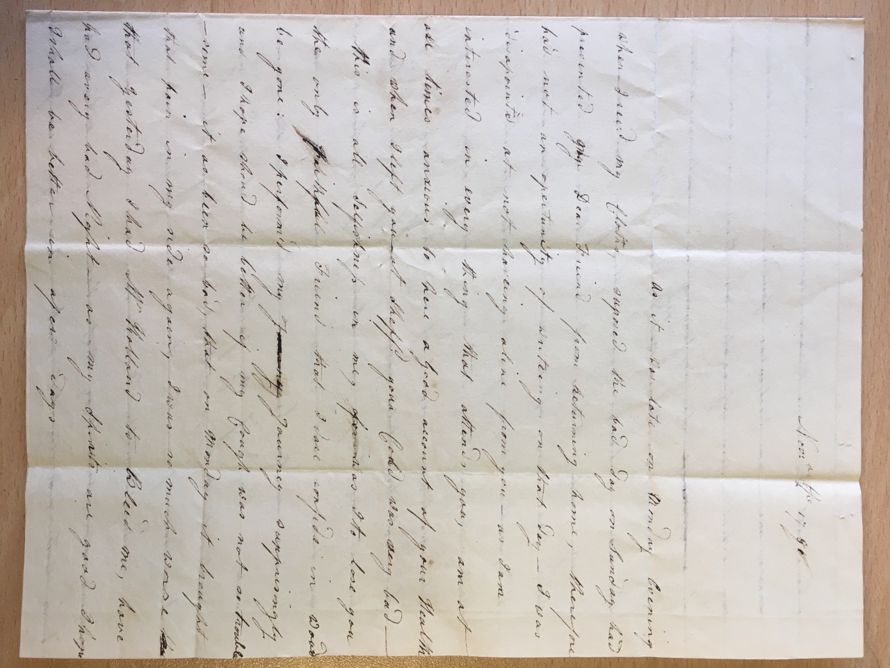 Nov 2 the 1796
As it was late on Monday Evening
when I send my Clothes, supposed the bad Day on Sunday had
prevented my Dear Friend from returning home, therefore
had not an opertunity of writeing on that Day - I was
disapointd at not haveing a line from you - as I am
interested in every thing that attends you, am at
all times anxious to have a good account of your Health
and when I left you at Sheffd your Cold was very bad -
this is all selfishness in me, was I to lose you
the only Friend that I dare confide in woud
be gone: I perform'd my Journey supprisingly
and I hope shoud be better if my Cough was not so trouble
-some - it as been so bad, that on Monday it brought
that pain in my side again, I was so much worse
that yesterday I had Mr Holland to Bleed me, have
had a very bad Night - as my Spirits are good I hope
I shall be better in a few days